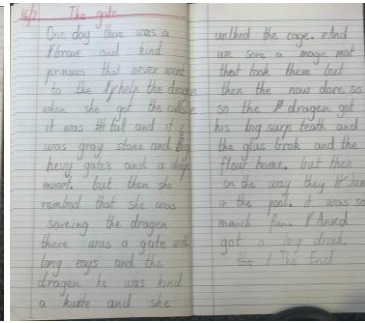 16/2 The gate
One day there was a
brave and kind
prinses that never went
to the help the dragen
when she got the
it was tall and it
was gray stone and big
hevy gates and a deep
moart. but then she
rembod that she was
saveing the dragen
there was a gate with
long eays and the
dragen he was kind
a and she
unlked the cage. And
we saw a mage mat
that took them but
then the now dare so
so the dragen got
his big surp teath and
the glus brok and the
flow home. but then
on the way they
in the pool. it was so
much fun. And
got a big drink.
The End